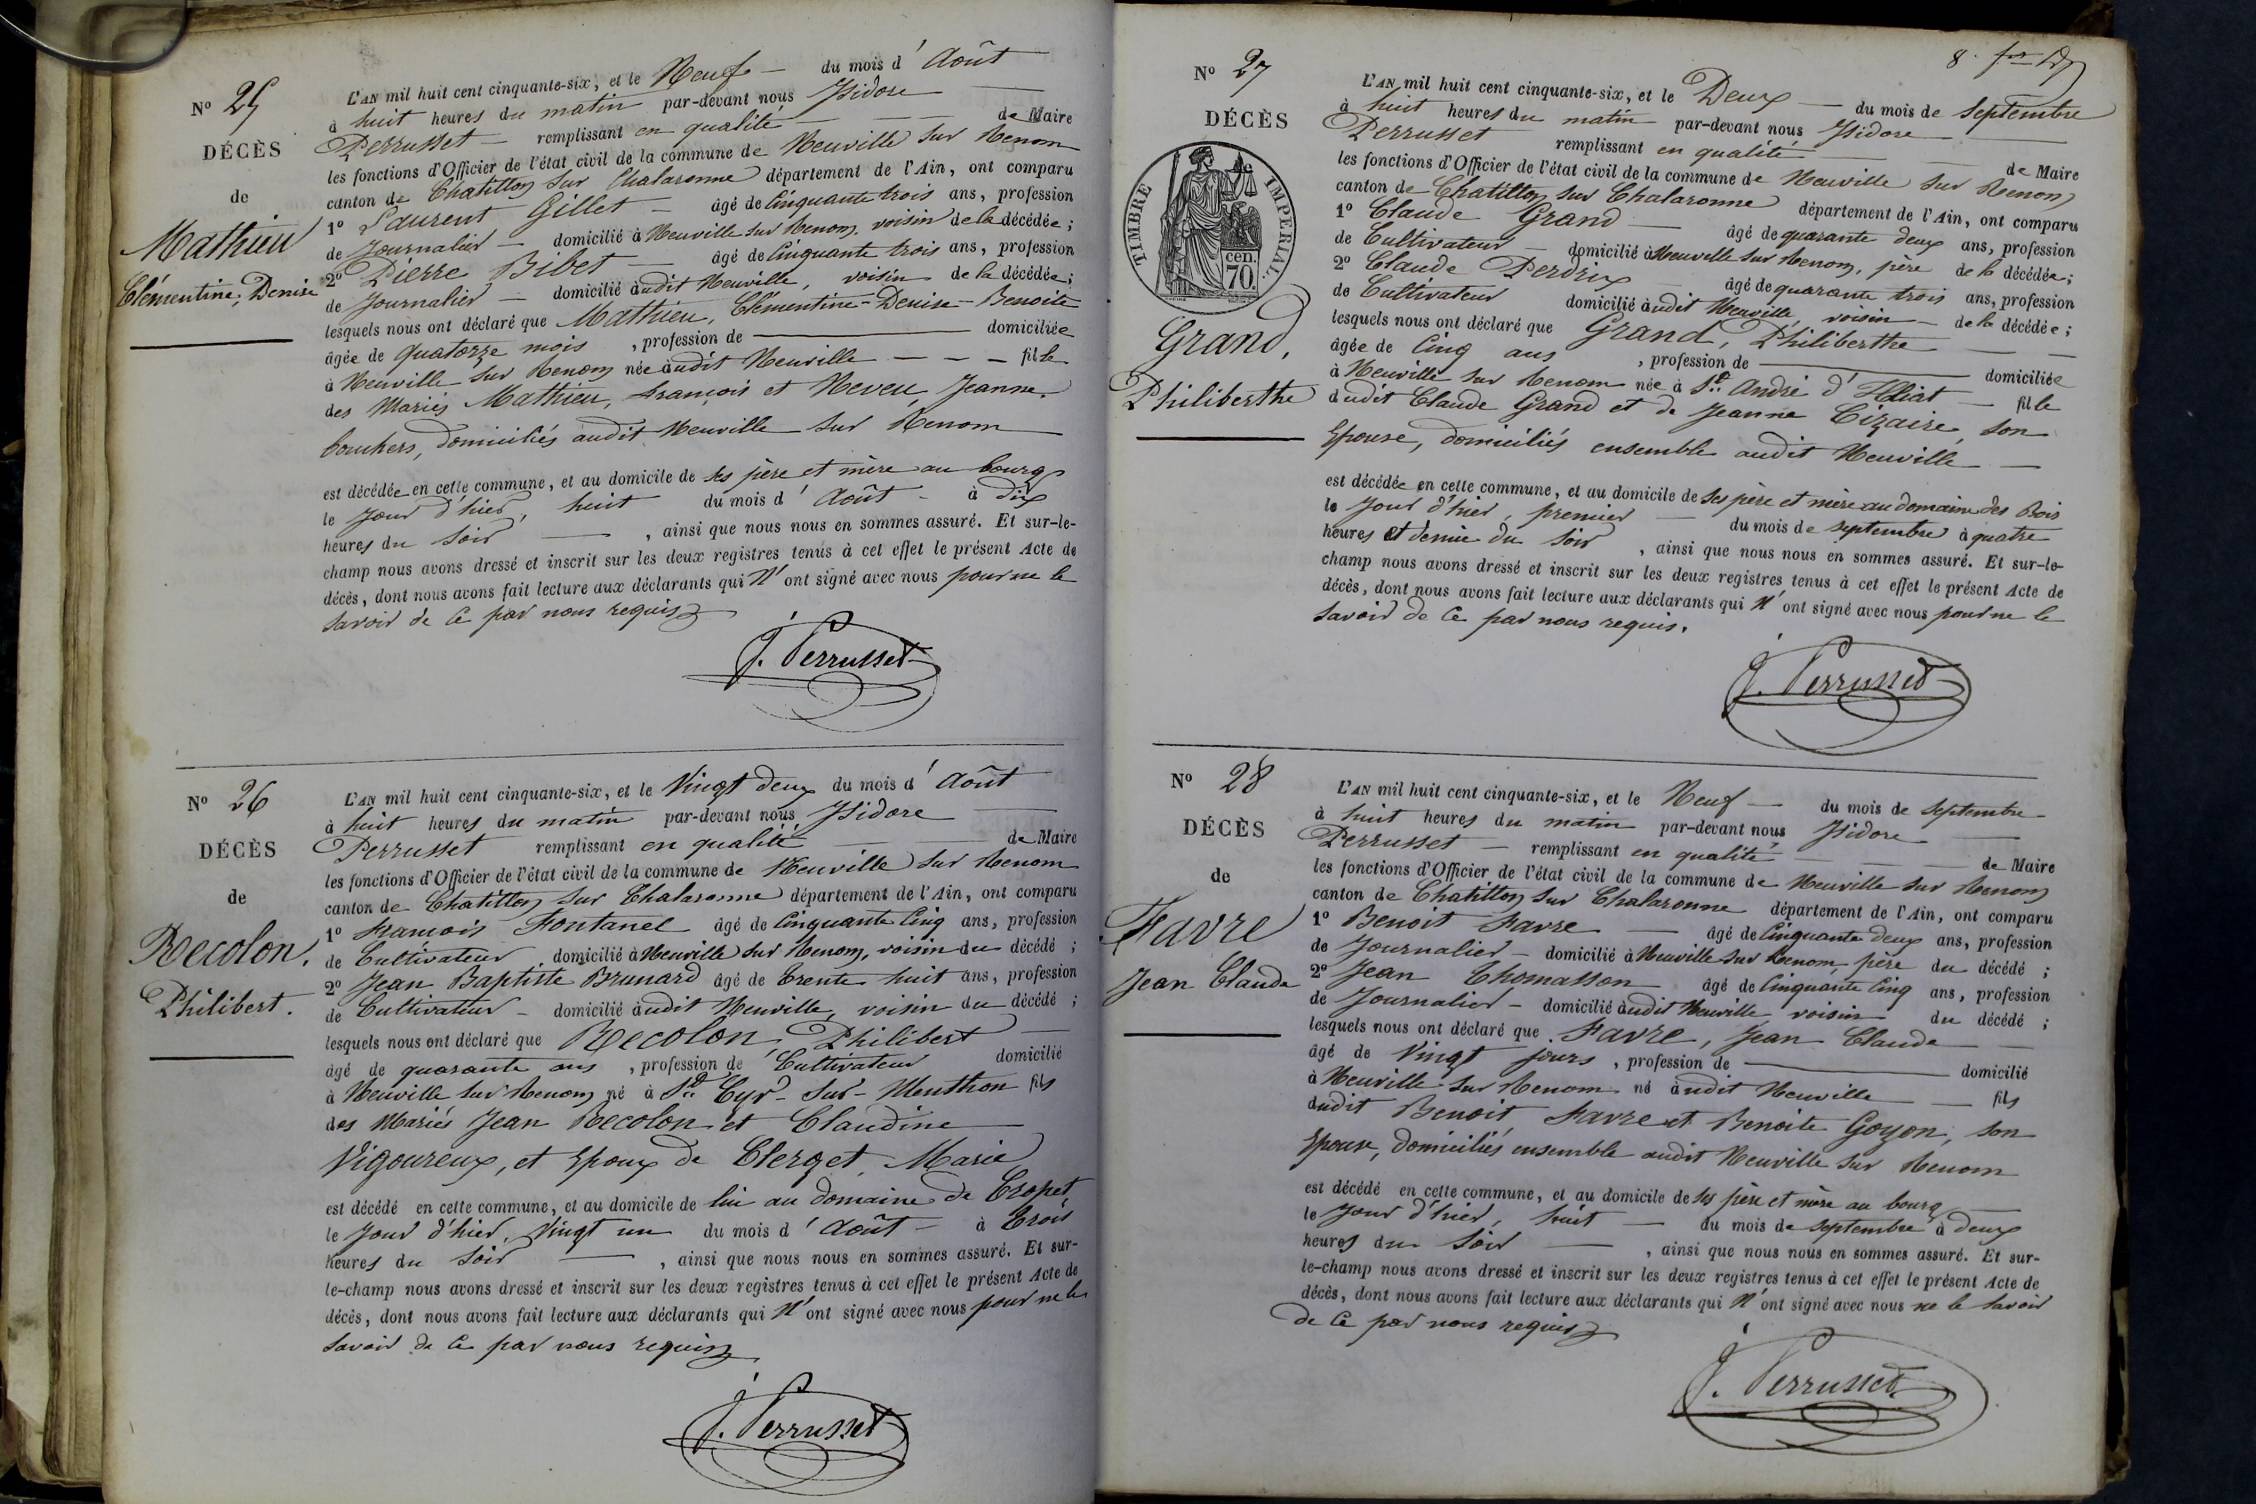 Nº 25
DÉCÈS
de
Mathieu
Clémentine, Denise
L'AN mil huit cent cinquante-six, et le Neuf — du mois d' Août
à huit heures du matin par-devant nous Isidore
Perrusset — remplissant en qualité — de Maire
les fonctions d'Officier de l'état civil de la commune de Neuville sur Renom
canton de Chatillon sur Chalaronne département de l'Ain, ont comparu
1º Laurent Gillet — âgé de Cinquante trois ans, profession
de Journalier — domicilié à Neuville sur Renom, voisin de la décédée;
2º Pierre Bibet — âgé de Cinquante trois ans, profession
de Journalier — domicilié audit Neuville, voisin de la décédée;
lesquels nous ont déclaré que Mathieu, Clémentine-Denise-Benoite
âgée de quatorze mois, profession de — domiciliée
à Neuville sur Renom née audit Neuville — — — fille
des Mariés Mathieu, françois et Neveu, Jeanne,
bouchers, domiciliés audit Neuville sur Renom
est décédée en cette commune, et au domicile de ses père et mère au bourg
le jour d'hier, huit du mois d' Août - à dix
heures du soir —, ainsi que nous nous en sommes assuré. Et sur-le-
champ nous avons dressé et inscrit sur les deux registres tenus à cet effet le présent Acte de
décès, dont nous avons fait lecture aux déclarants qui N'ont signé avec nous pour ne le
savoir de ce par nous requis
J. Perrusset
Nº 26
DÉCÈS
de
Recolon.
Philibert.
L'AN mil huit cent cinquante-six, et le Vingt deux du mois d' Août
à huit heures du matin par-devant nous Isidore
Perrusset remplissant en qualité — de Maire
les fonctions d'Officier de l'état civil de la commune de Neuville sur Renom
canton de Chatillon sur Chalaronne département de l'Ain, ont comparu
1º françois Fontanel âgé de Cinquante Cinq ans, profession
de Cultivateur domicilié à Neuville sur Renom, voisin du décédé;
2º Jean Baptiste Brunard âgé de trente huit ans, profession
de Cultivateur - domicilié audit Neuville, voisin du décédé;
lesquels nous ont déclaré que Recolon, Philibert —
âgé de quarante ans, profession de Cultivateur domicilié
à Neuville sur Renom né à St. Cyr-sur-Menthon fils
des Mariés Jean Recolon et Claudine —
Vigoureux, et Epoux de Clerget, Marie
est décédé en cette commune, et au domicile de lui au domaine de Cropet,
le jour d'hier, Vingt un du mois d' Août - à trois
heures du soir —, ainsi que nous nous en sommes assuré. Et sur-
le-champ nous avons dressé et inscrit sur les deux registres tenus à cet effet le présent Acte de
décès, dont nous avons fait lecture aux déclarants qui N'ont signé avec nous pour ne le
savoir de ce par nous requis
J. Perrusset
8.
Nº 27
DÉCÈS
de
TIMBRE IMPÉRIAL.
cen.
70.
Grand,
Philiberthe
L'AN mil huit cent cinquante-six, et le Deux — du mois de Septembre
à huit heures du matin par-devant nous Isidore —
Perrusset remplissant en qualité — de Maire
les fonctions d'Officier de l'état civil de la commune de Neuville sur Renom
canton de Chatillon sur Chalaronne département de l'Ain, ont comparu
1º Claude Grand — âgé de quarante deux ans, profession
de Cultivateur — domicilié à Neuville sur Renom, père de la décédée;
2º Claude Perdrix âgé de quarante trois ans, profession
de Cultivateur domicilié audit Neuville, voisin - de la décédée;
lesquels nous ont déclaré que Grand, Philiberthe —
âgée de Cinq ans, profession de — domiciliée
à Neuville sur Renom née à St. André d'Huiriat — fille
dudit Claude Grand et de Jeanne Cizaire, son
Epouse, domiciliés ensemble audit Neuville —
est décédée en cette commune, et au domicile de ses père et mère au domaine des Bois
le jour d'hier, premier — du mois de septembre à quatre
heures et demie du soir, ainsi que nous nous en sommes assuré. Et sur-le-
champ nous avons dressé et inscrit sur les deux registres tenus à cet effet le présent Acte de
décès, dont nous avons fait lecture aux déclarants qui N'ont signé avec nous pour ne le
savoir de ce par nous requis.
J. Perrusset
Nº 28
DÉCÈS
de
Favre
Jean Claude
L'AN mil huit cent cinquante-six, et le Neuf — du mois de septembre
à huit heures du matin par-devant nous Isidore
Perrusset — remplissant en qualité — — — de Maire
les fonctions d'Officier de l'état civil de la commune de Neuville sur Renom
canton de Chatillon sur Chalaronne département de l'Ain, ont comparu
1º Benoit Favre — âgé de Cinquante deux ans, profession
de Journalier - domicilié à Neuville sur Renom, père du décédé;
2º Jean Thomasson âgé de Cinquante Cinq ans, profession
de Journalier - domicilié audit Neuville, voisin du décédé;
lesquels nous ont déclaré que Favre, Jean Claude —
âgé de Vingt jours, profession de — domicilié
à Neuville sur Renom né audit Neuville — fils
dudit Benoit Favre et Benoite Goyon, son
Epouse, domiciliés ensemble audit Neuville sur Renom
est décédé en cette commune, et au domicile de ses père et mère au bourg —
le jour d'hier, huit — du mois de septembre à deux
heures du soir —, ainsi que nous nous en sommes assuré. Et sur-
le-champ nous avons dressé et inscrit sur les deux registres tenus à cet effet le présent Acte de
décès, dont nous avons fait lecture aux déclarants qui N'ont signé avec nous ne le savoir
de ce par nous requis
J. Perrusset